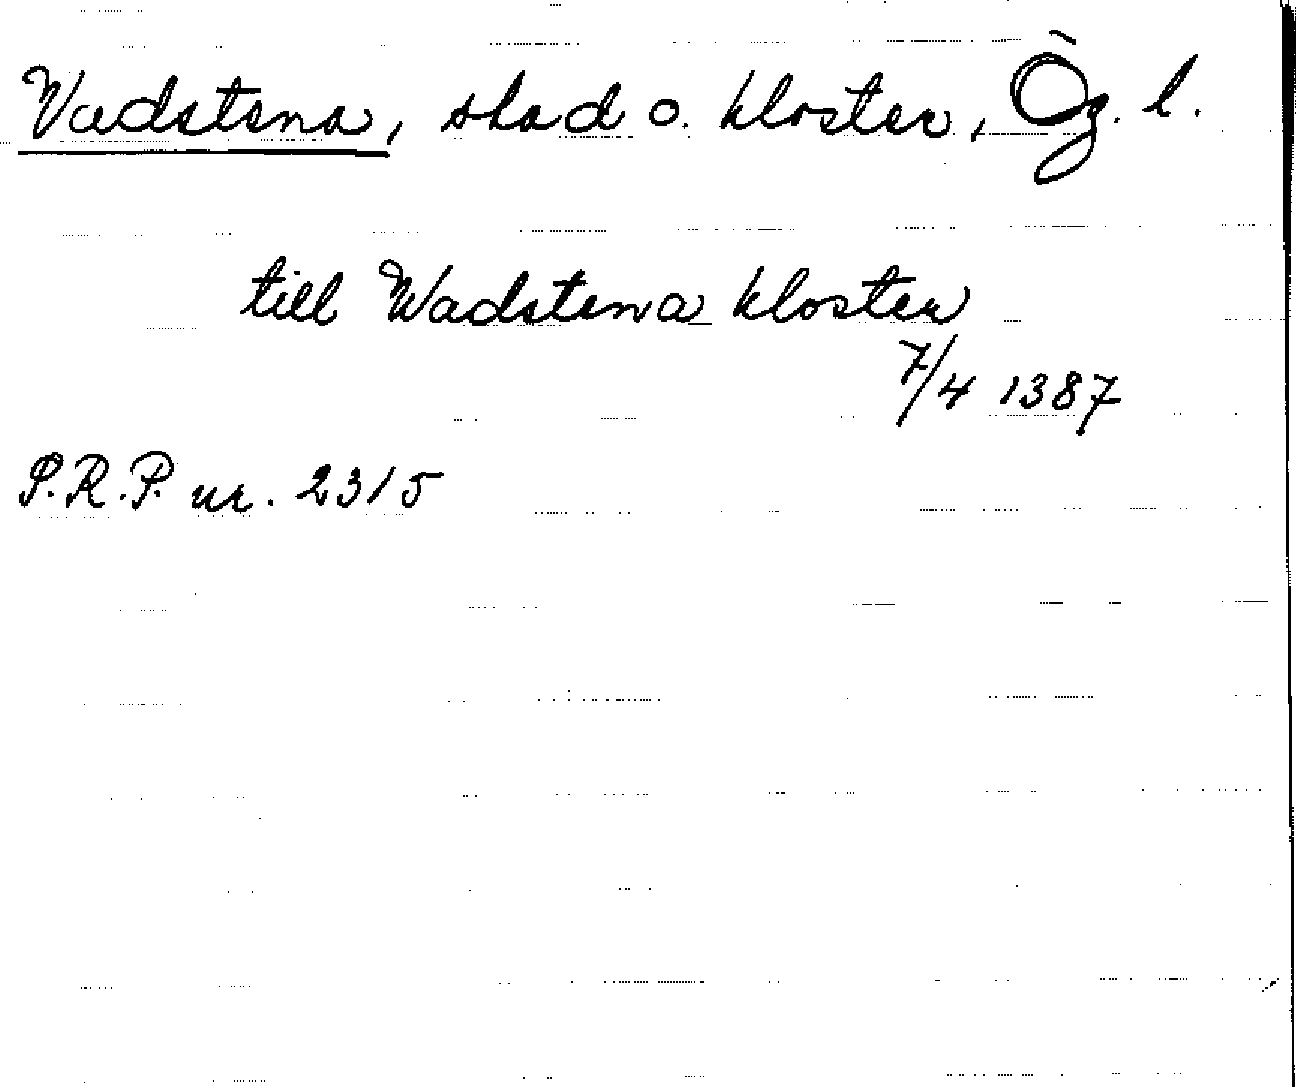 Vadstena, stad o. kloster, Ög. l.
till Wadstena kloster
7/4 1387
P.R.P. nr. 2315